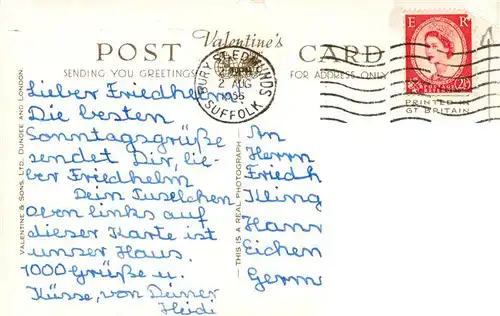 POST Valentine's CARD
SENDING YOU GREETINGS FOR ADDRESS ONLY
BURY ST. EDMUNDS
2 AUG
1955
SUFFOLK
E R
POSTAGE
2½
PRINTED IN
GT BRITAIN
VALENTINE & SONS. LTD. DUNDEE AND LONDON.
THIS IS A REAL PHOTOGRAPH
Lieber Friedhelm!
Die besten
Sonntagsgrüße
sendet Dir, lie-
ber Friedhelm
Dein Tuselchen
oben links auf
dieser Karte ist
unser Haus.
1000 Grüße u.
Küsse, von Deiner
Heidi
An
Herrn
Friedh
Kling
Hann
Eichen
Germ